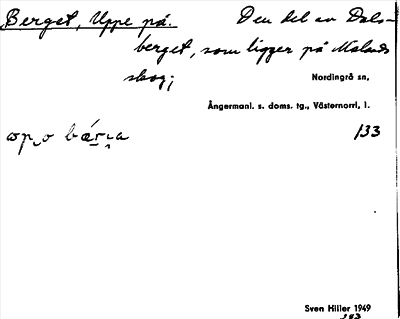 Berget, Uppe på. Den del av Dals-
berget, som ligger på Malands
skog;
Nordingrå sn,
Ångermanl. s. doms. tg., Västernorrl. l.
133
Sven Hiller 1949